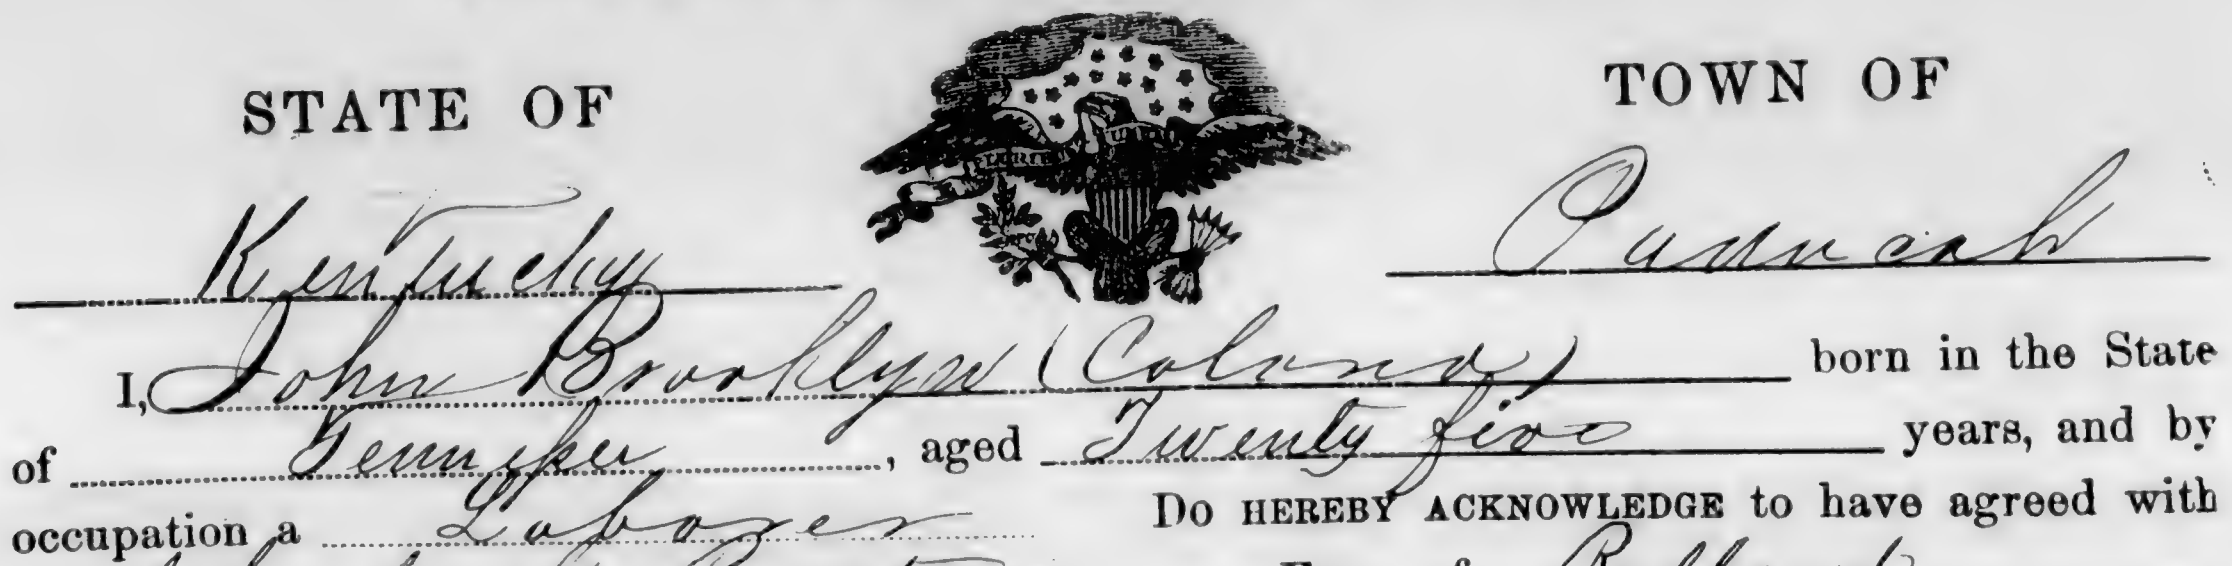 STATE OF
TOWN OF
Kentucky
Paducah
I, John Brooklyn (Colored) born in the State
of Tennessee, aged Twenty five years, and by
occupation a Laborer Do HEREBY ACKNOWLEDGE to have agreed with